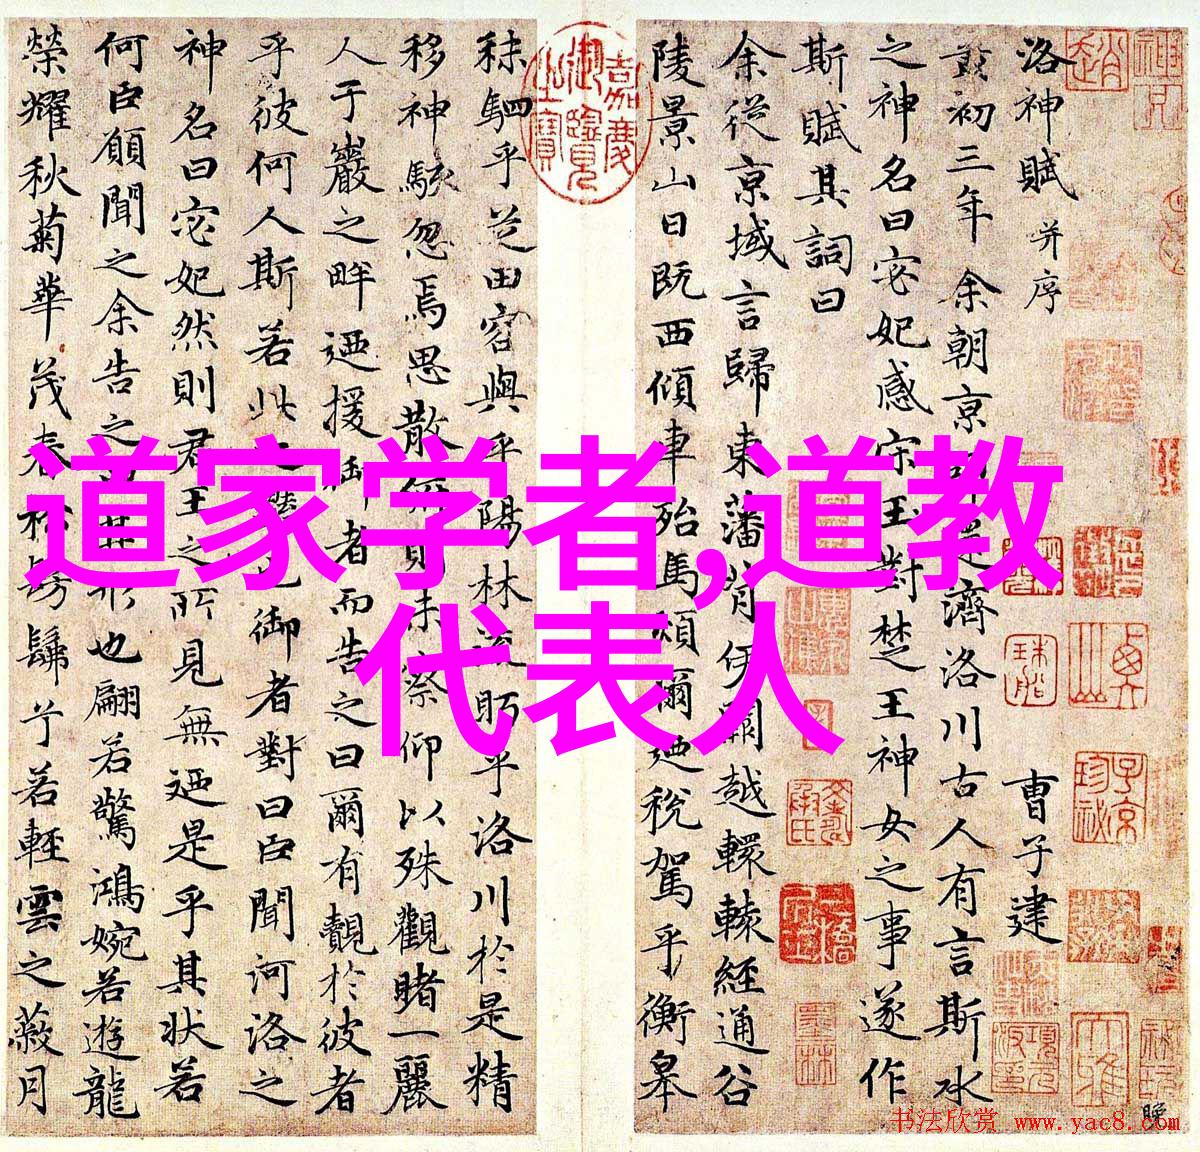 道家学者,道教
代表人
洛神賦 并序 曹子建
黃初三年余朝京濟洛川古人有言斯水
之神名曰宓妃感宋玉對楚王神女之事遂作
斯賦其詞曰
余從京域言歸東藩背伊闕越轘轅經通谷
陵景山日既西傾車殆馬煩爾迺稅駕乎衡皋
嘉慶御覽之寶
秣駟乎芝田容與乎陽林流眄乎洛川於是精
移神駭忽焉思散俯則未察仰以殊觀睹一麗
人于巖之畔迺援御者而告之曰爾有覿於彼者
乎彼何人斯若此之豔也御者對曰臣聞河洛之
神名曰宓妃然則君王之所見無迺是乎其狀若
何臣願聞之余告之其形也翩若驚鴻婉若遊龍
榮耀秋菊華茂春松髣髴兮若輕雲之蔽月
书法欣赏 www.yac8.com